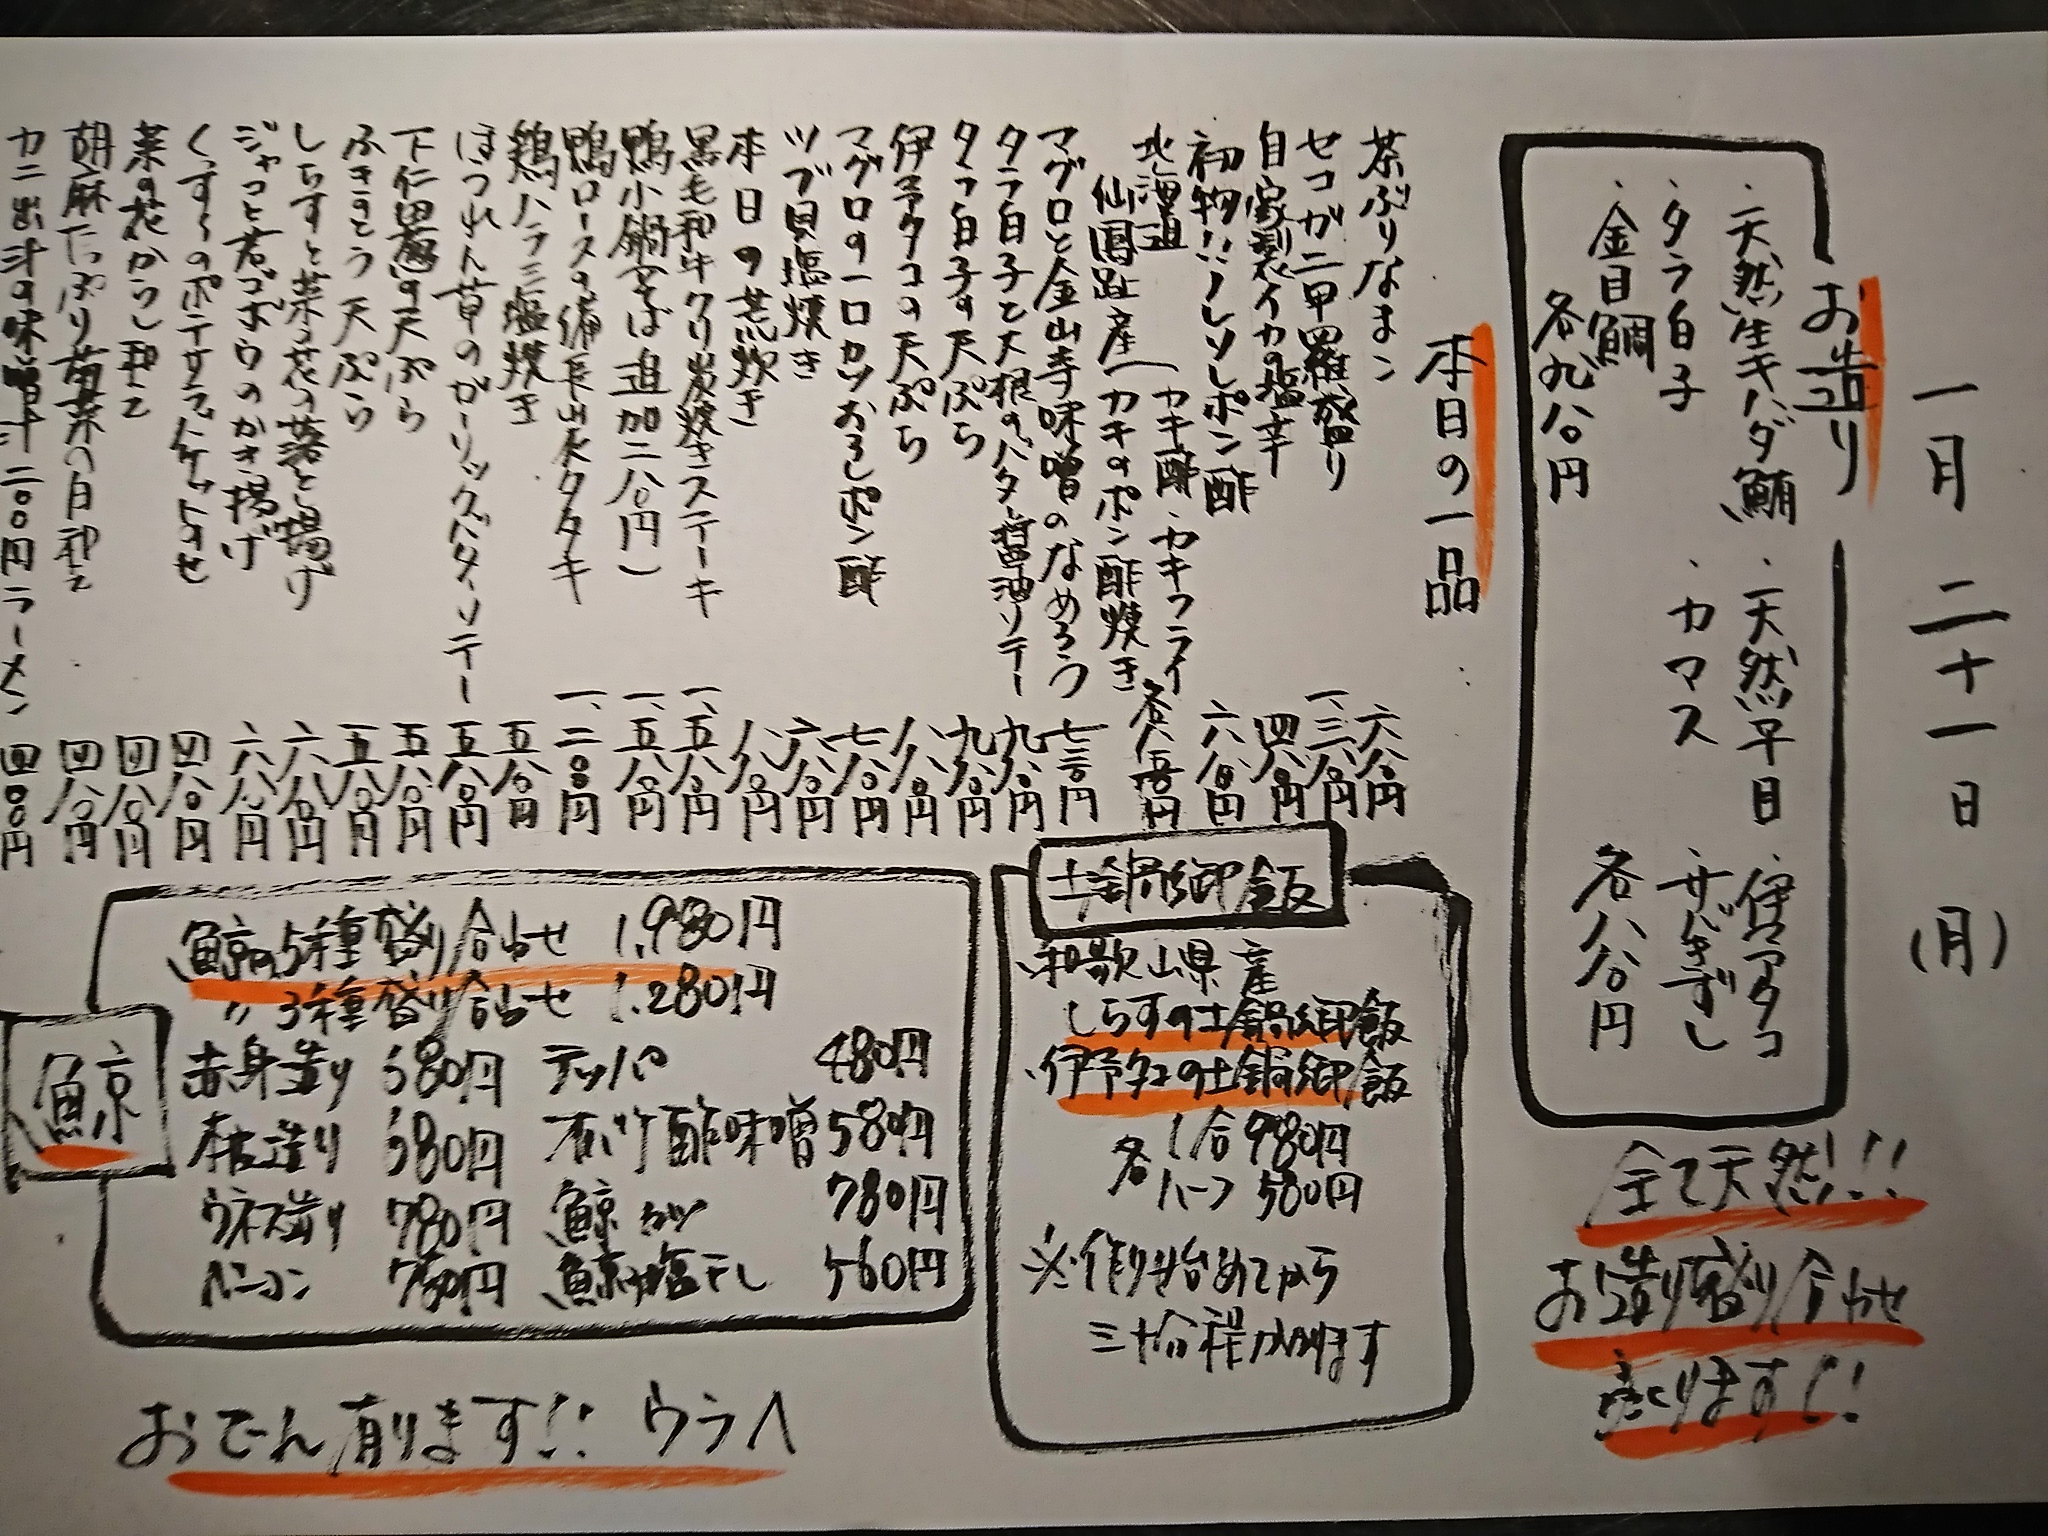 一月二十一日(月)
お造り
・天然生キハダ鮪 ・天然平目 ・伊予タコ
・タラ白子 ・カマス ・サバきずし
・金目鯛
各九八〇円 各八八〇円
全て天然!!
お造り盛り合わせ
有ります!!
本日の一品
茶ぶりなまこ 六八〇円
セコガニ甲羅盛り 一、三八〇円
自家製イカの塩辛 四八〇円
初物!!ノレソレポン酢 六八〇円
北海道
仙鳳趾産(カキ酢・カキフライ
カキのポン酢焼き 各八五〇円
マグロと金山寺味噌のなめろう 七三〇円
タラ白子と大根のバター醤油ソテー 九八〇円
タラ白子の天ぷら 九八〇円
伊予タコの天ぷら 八八〇円
マグロの一口カツおろしポン酢 七八〇円
ツブ貝塩焼き 六八〇円
本日の荒炊き 八八〇円
黒毛和牛クリ炭焼きステーキ 一、五八〇円
鴨小鍋(そば追加二八〇円) 一、五八〇円
鴨ロースの備長山水タタキ 一、二〇〇円
鶏ハラミ塩焼き 五八〇円
ほうれん草のガーリックバターソテー 五八〇円
下仁田葱の天ぷら 五八〇円
ふきのとう天ぷら 五八〇円
しらすと菜の花の落とし揚げ 六八〇円
ジャコと若ゴボウのかき揚げ 六八〇円
くんすーのポテサラバケットのせ 四八〇円
菜の花からし和え 四八〇円
胡麻たっぷり菊菜の月和え 四八〇円
カニ出汁の味噌汁二〇〇円ラーメン 四〇〇円
土鍋御飯
・和歌山県産
しらすの土鍋御飯
・伊予タコの土鍋御飯
各 1合 980円
ハーフ 580円
※作り始めてから
三十分程かかります
鯨
鯨の5種盛り合わせ 1,980円
〃 3種盛り合わせ 1,280円
赤身造り 680円 テッパ 480円
本皮造り 680円 オバケ酢味噌 580円
ウネス造り 780円 鯨カツ 780円
ベーコン 780円 鯨の塩干し 560円
おでん有ります!! ウラへ